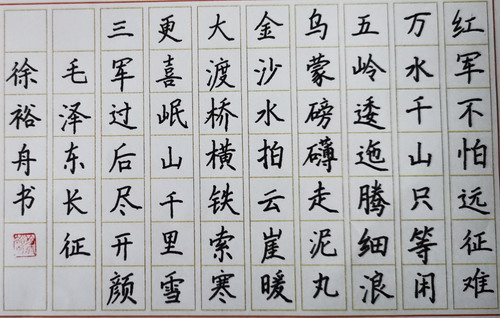 红军不怕远征难
万水千山只等闲
五岭逶迤腾细浪
乌蒙磅礴走泥丸
金沙水拍云崖暖
大渡桥横铁索寒
更喜岷山千里雪
三军过后尽开颜
毛泽东长征
徐裕舟书